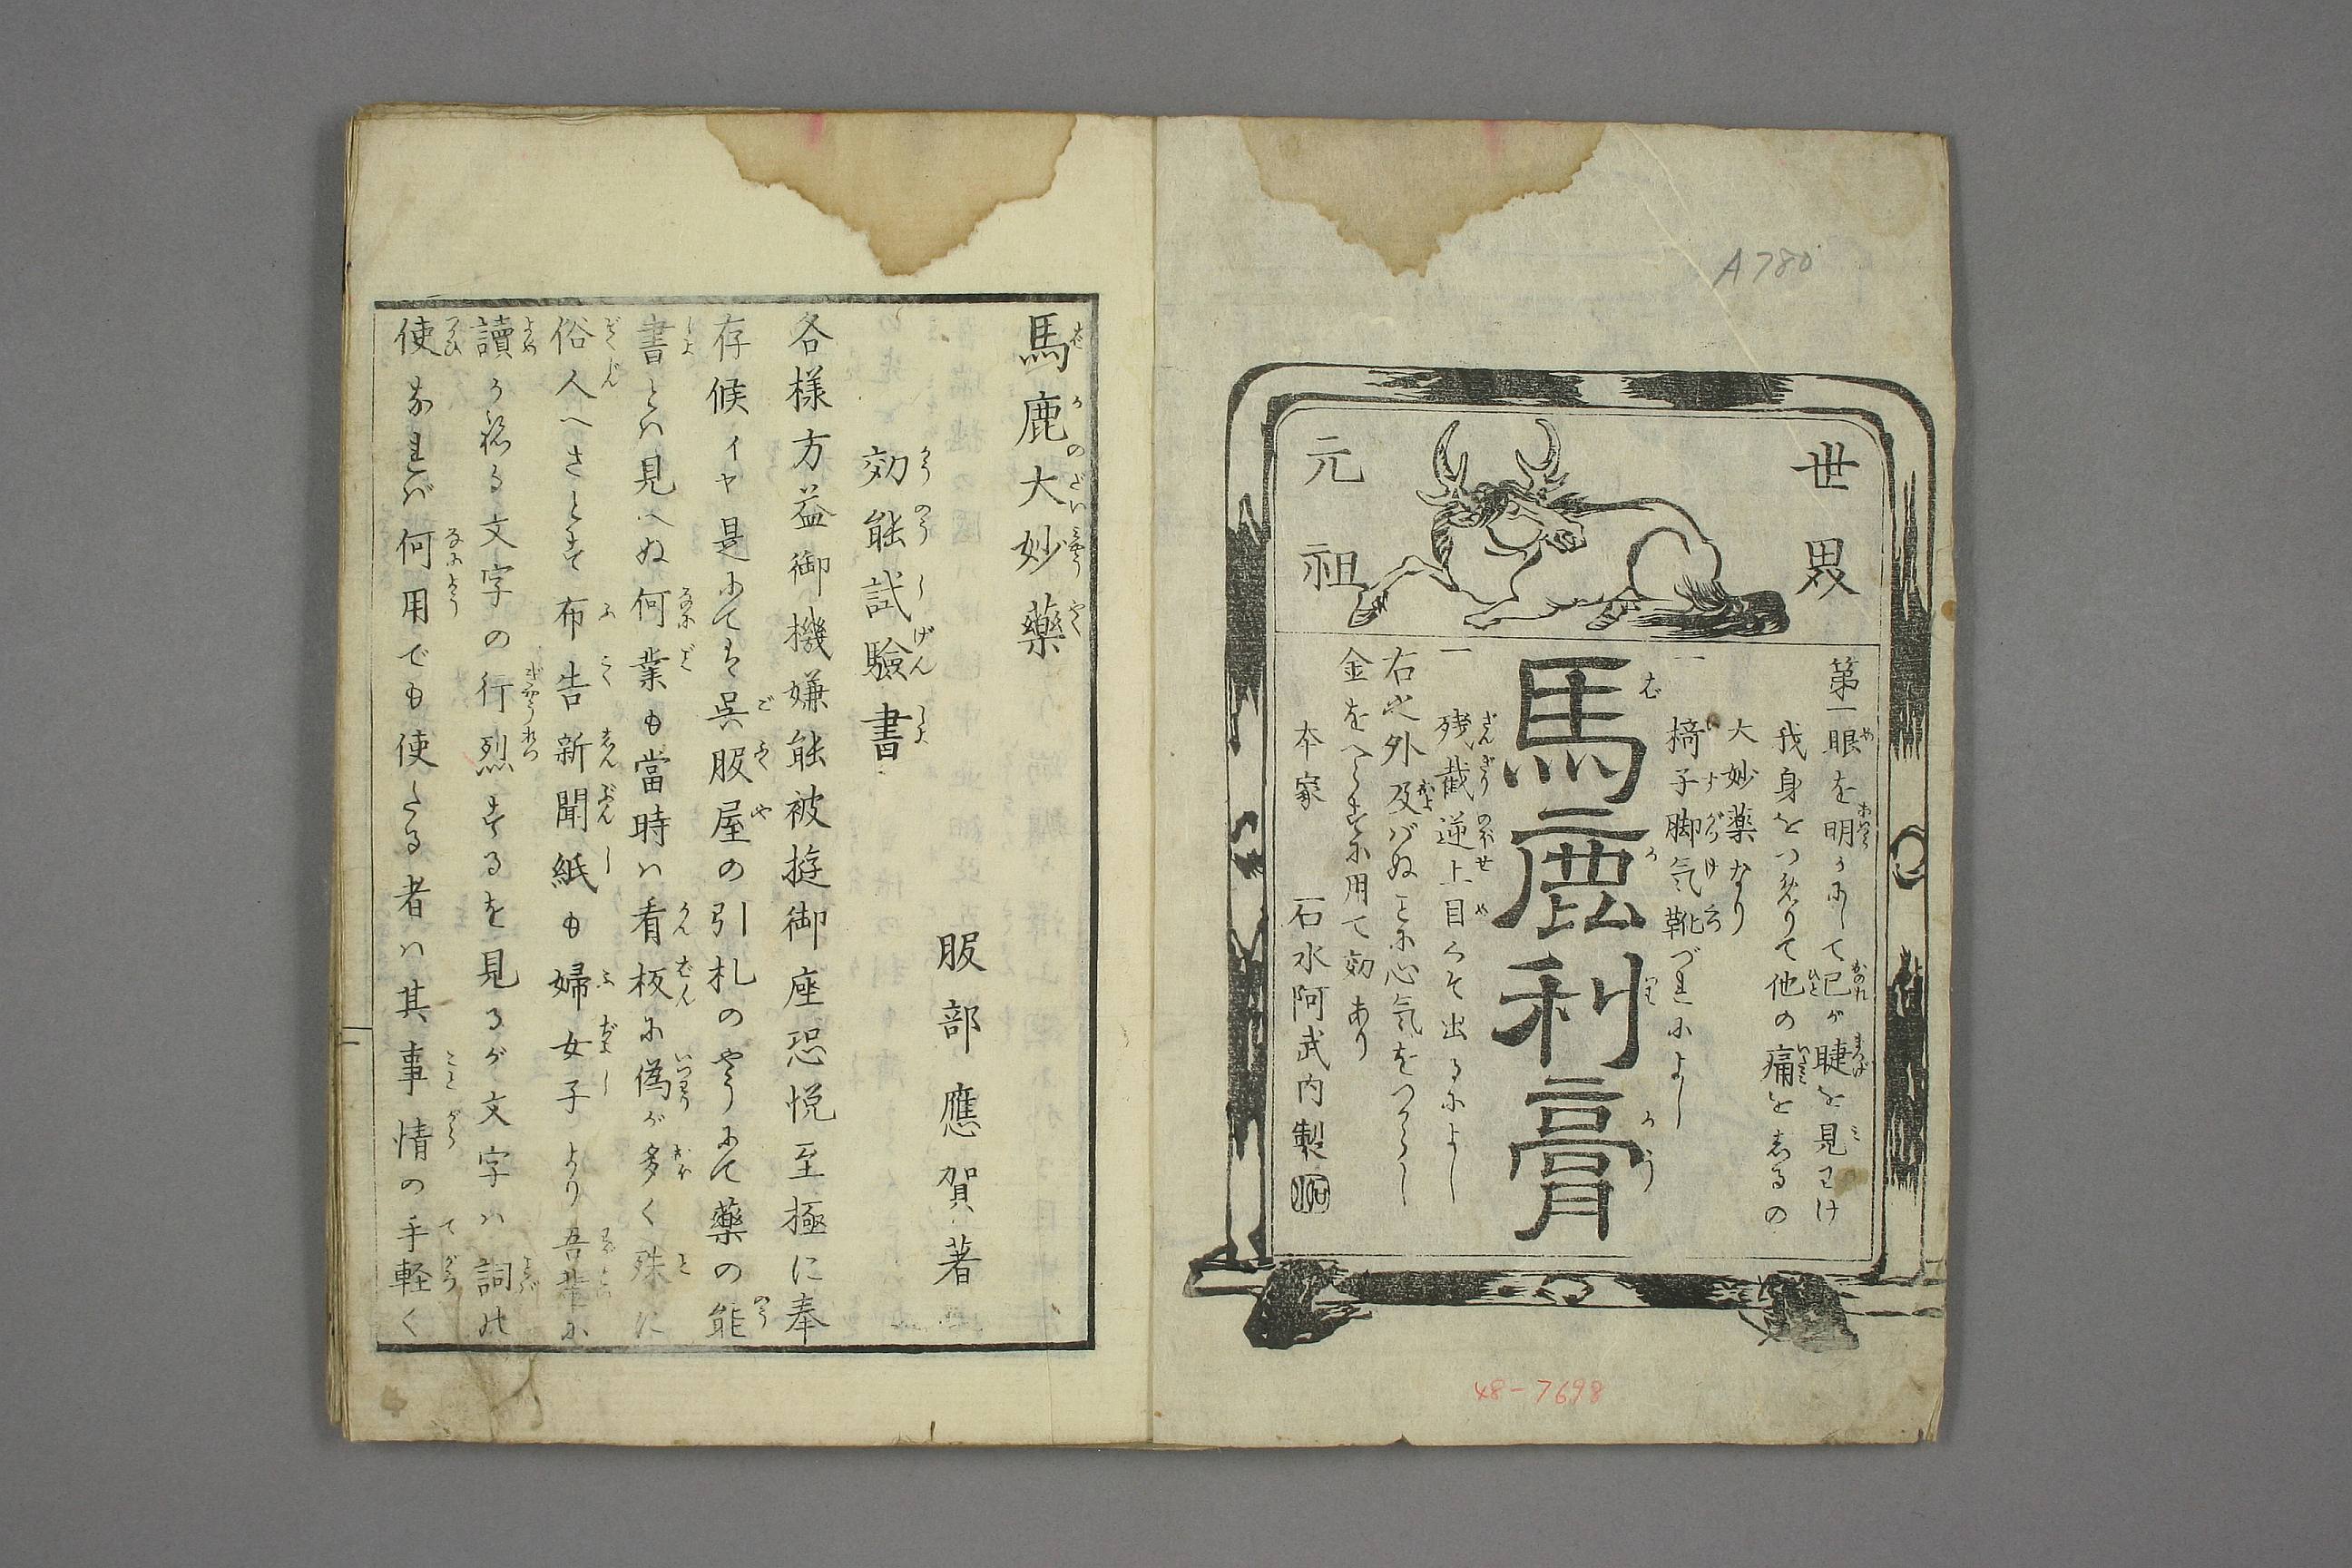 A780
世界
元祖
第一眼を明らかにして己が睫を見わけ
我身をつめりて他の痛を志るの
大妙薬なり
一
椅子脚気靴づれによし
馬鹿利膏
一
残截逆上目くそ出るによし
右之外及バぬことに心気をつからし
金をへらすに用て効あり
本家 石水阿武内製
48-7698
馬鹿大妙藥
服部應賀著
効能試驗書
各様方益御機嫌能被遊御座恐悦至極に奉
存候イヤ是にてハ呉服屋の引札のやうにて藥の能
書とハ見へぬ何業も當時ハ看板に偽が多く殊に
俗人へさとす布告新聞紙も婦女子より吾輩に
讀かねる文字の行烈するを見るが文字ハ詞の
使なれバ何用でも使たる者ハ其事情の手軽く